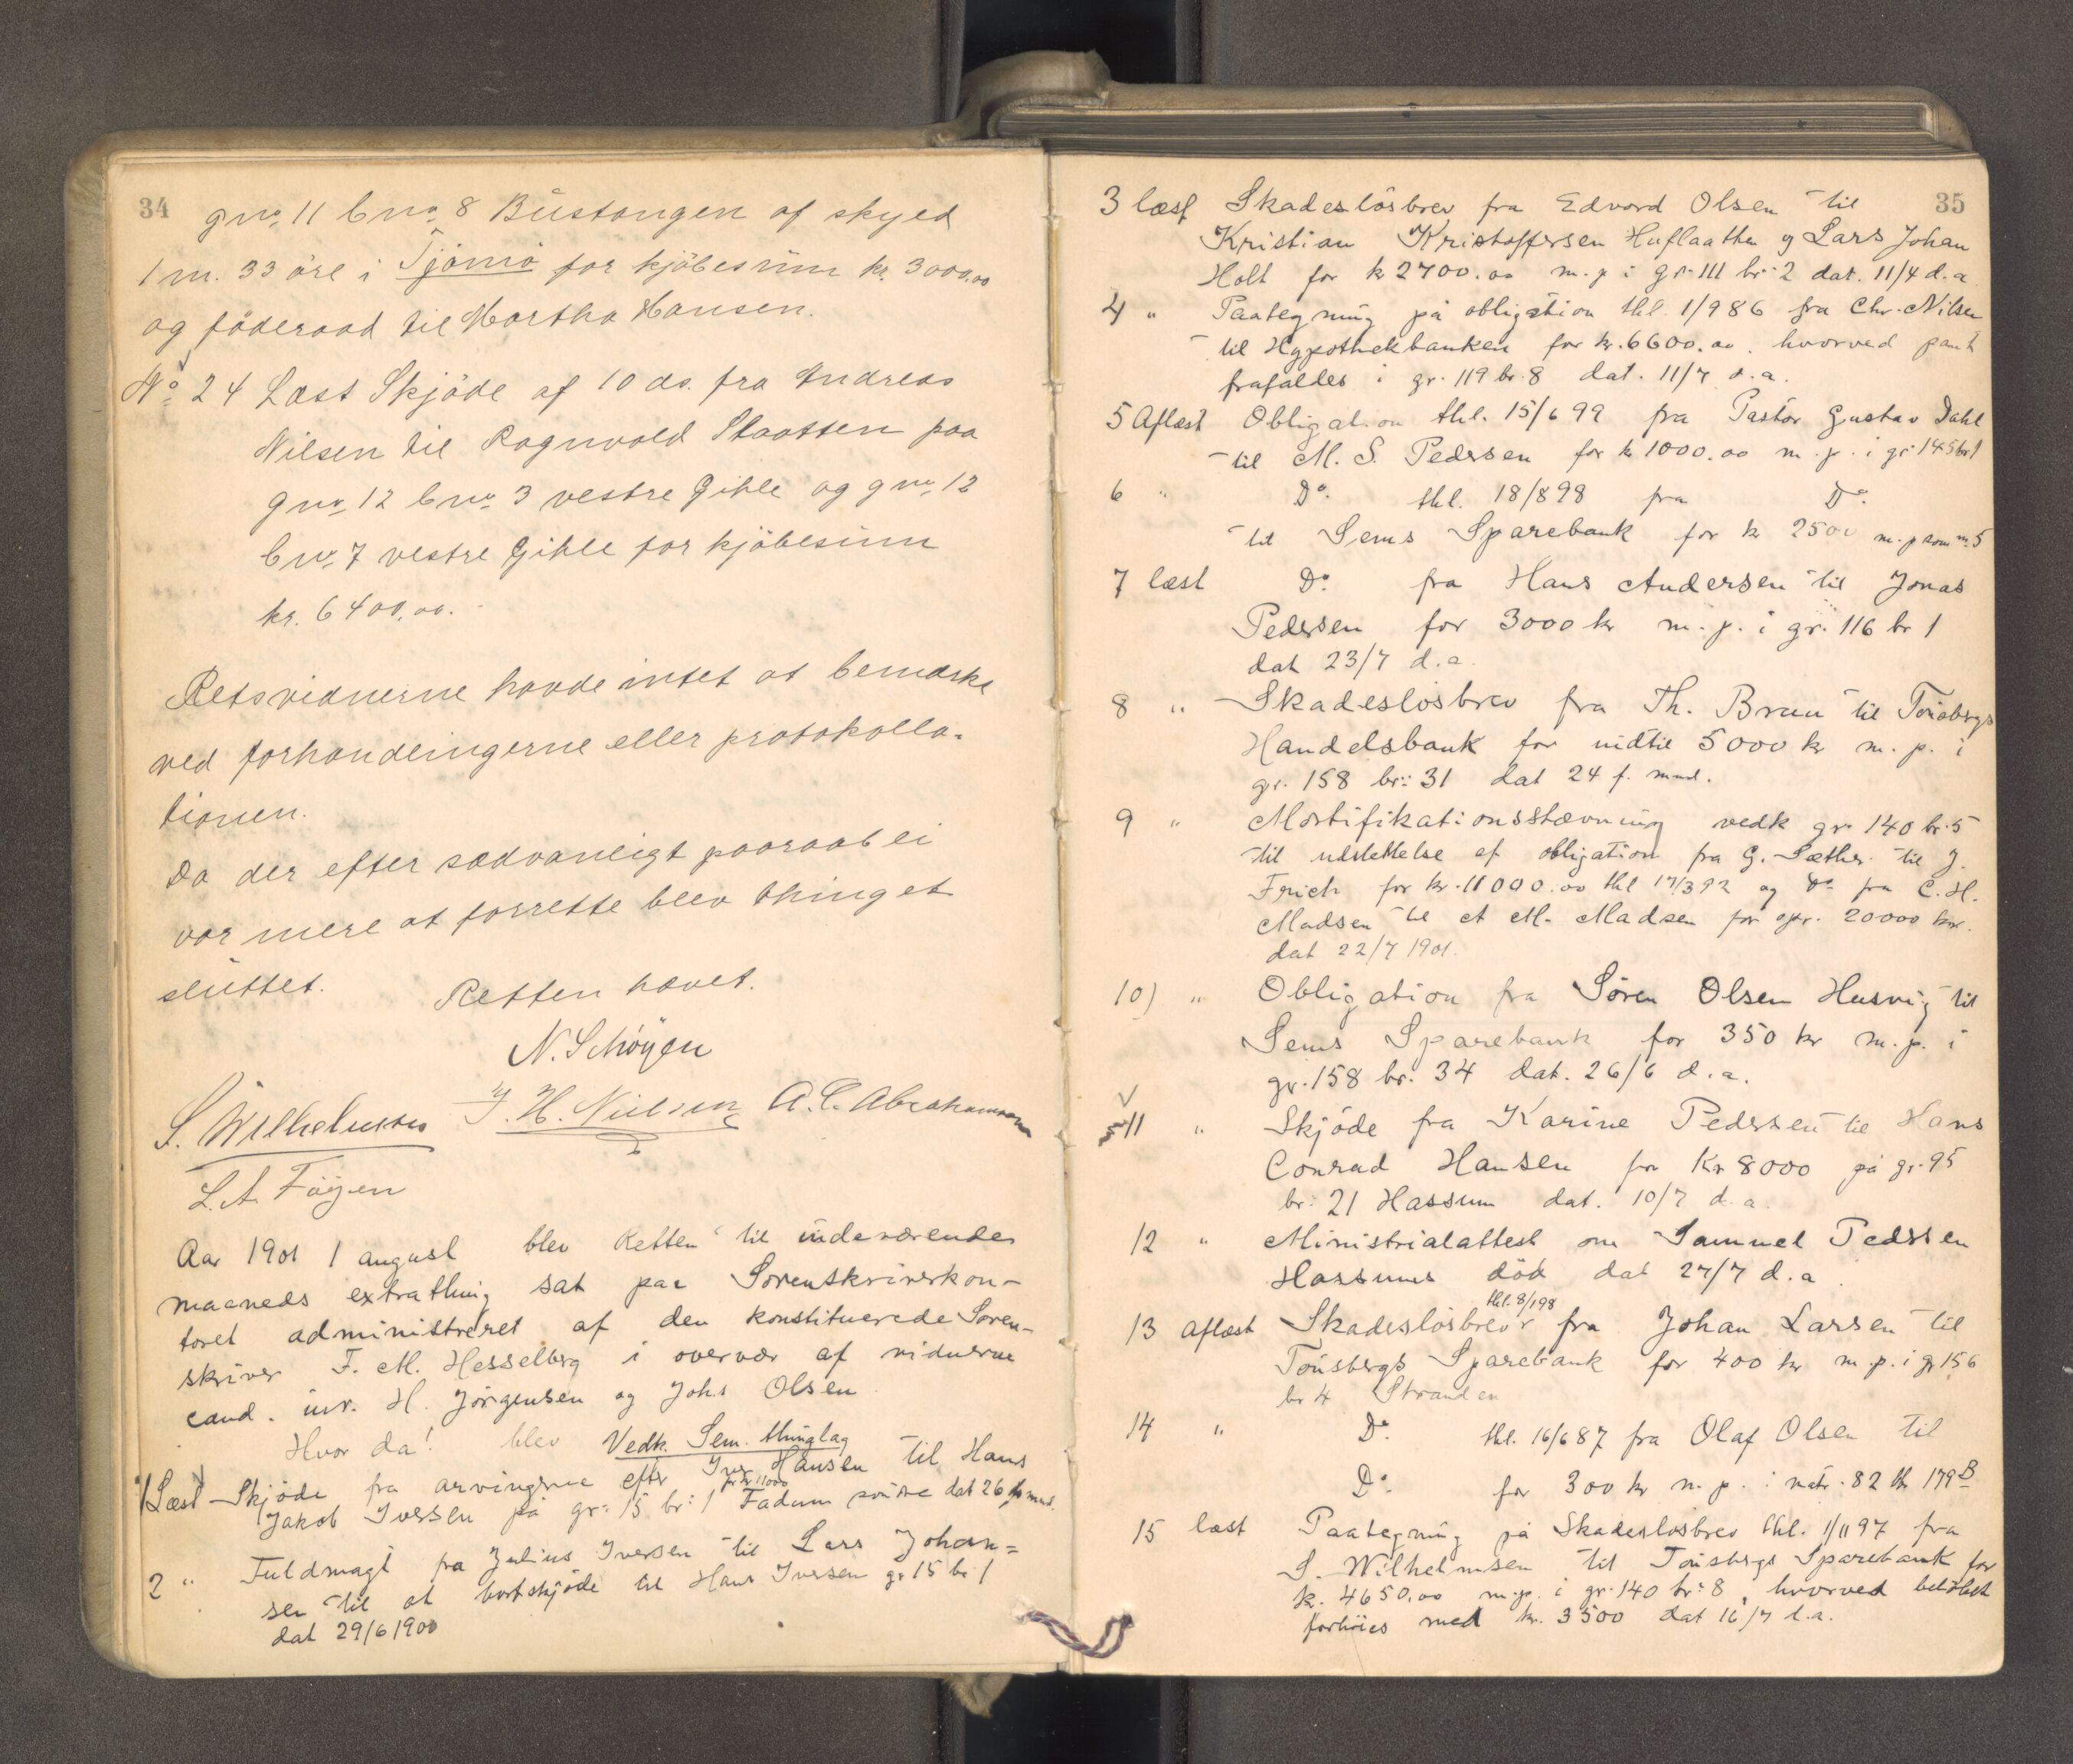 34
gno. 11 bno. 8 Büstangen af skyld
1 m. 33 öre i Tjömö for kjöbesüm kr. 3000.00
og föderaad til Martha Hansen.
No. 24 Læst Skjöde af 10 ds. fra Andreas
Nilsen til Ragnvald Staatten paa
gno. 12 bno. 3 vestre Gihle og gno. 12
bno. 7 vestre Gihle for kjöbesüm
kr. 6400.00.
Retsvidnerne havde intet at bemærke
ved forhandlingerne eller protokolla-
tionen.
Da der efter sædvanligt paaraab ei
var mere at forrette blev thinget
slüttet.
Retten hævet.
N. Schöyen
S. Wilhelmsen J. H. Nielsen A. C. Abrahamsen
L. A. Föyen
Aar 1901 1 august blev Retten til indeværende
maaneds extrathing sat paa Sorenskriverkon-
toret administreret af den konstituerede Soren-
skriver F. M. Hesselberg i overvær af vidnerne
cand. jur. H. Jörgensen og Johs Olsen
Hvor da! blev Vedk. Sem. thinglag
1 Læst Skjöde fra arvingerne efter Iver Hansen til Hans
for kr 11000
Jakob Iversen på gr: 15 br: 1 Fadum söndre dat 26 f. mnd.
2 " Fuldmagt fra Julius Iversen til Lars Johan=
sen til at bortskjöde til Hans Iversen gr 15 br 1
dat 29/6 1900
35
3 læst Skadeslösbrev fra Edvard Olsen til
Kristian Kristoffersen Huflaatten og Lars Johan
Holt for kr 2700.00 m.p i gr. 111 br: 2 dat. 11/4 d.a
4 " Paategning på obligation thl. 1/986 fra Chr. Nilsen
til Hypothekbanken for kr. 6600.00. hvorved pant
frafaldes i gr. 119 br. 8 dat. 11/7 d.a.
5 Aflæst Obligation thl. 15/6 99 fra Pastor Gustav Dahl
til M. S. Pedersen for kr 1000.00 m.p. i gr. 145 br 1
6 " Do. thl. 18/898 fra Do.
til Sems Sparebank for kr 2500 m.p som no. 5
7 læst Do. fra Hans Andersen til Jonas
Pedersen for 3000 kr m.p. i gr. 116 br 1
dat 23/7 d.a.
8 " Skadeslösbrev fra Th. Bruu til Tönsbergs
Handelsbank for indtil 5000 kr m.p. i
gr. 158 br: 31 dat 24 f. mnd.
9 " Mortifikationsstævning vedk gr 140 br. 5
til udslettelse af obligation fra G. Sæther til J.
Frich for kr. 11000.00 thl 17/392 og Do fra C. H.
Madsen til A M. Madsen for opr. 20000 kr.
dat 22/7 1901.
10) " Obligation fra Sören Olsen Husvig til
Sems Sparebank for 350 kr m.p. i
gr. 158 br. 34 dat. 26/6 d.a.
11 " Skjöde fra Karine Pedersen til Hans
Conrad Hansen for Kr 8000 på gr. 95
br: 21 Hassum dat. 10/7 d.a
12 " Ministrialattest om Samuel Pedersen
Hassums död dat 27/7 d.a.
thl. 8/198
13 Aflæst Skadeslösbrev fra Johan Larsen til
Tönsbergs Sparebank for 400 kr m.p. i gr 156
br 4 Stranden
14 " Do. thl. 16/687 fra Olaf Olsen til
Do. for 300 kr m.p. i matr. 82 lb 179B
15 læst Paategning på Skadeslösbrev thl. 1/1197 fra
S. Wilhelmsen til Tönsbergs Sparebank for
kr. 4650.00 m.p. i gr. 140 br: 8, hvorved belöbet
forhöies med kr. 3500 dat 16/7 d.a.